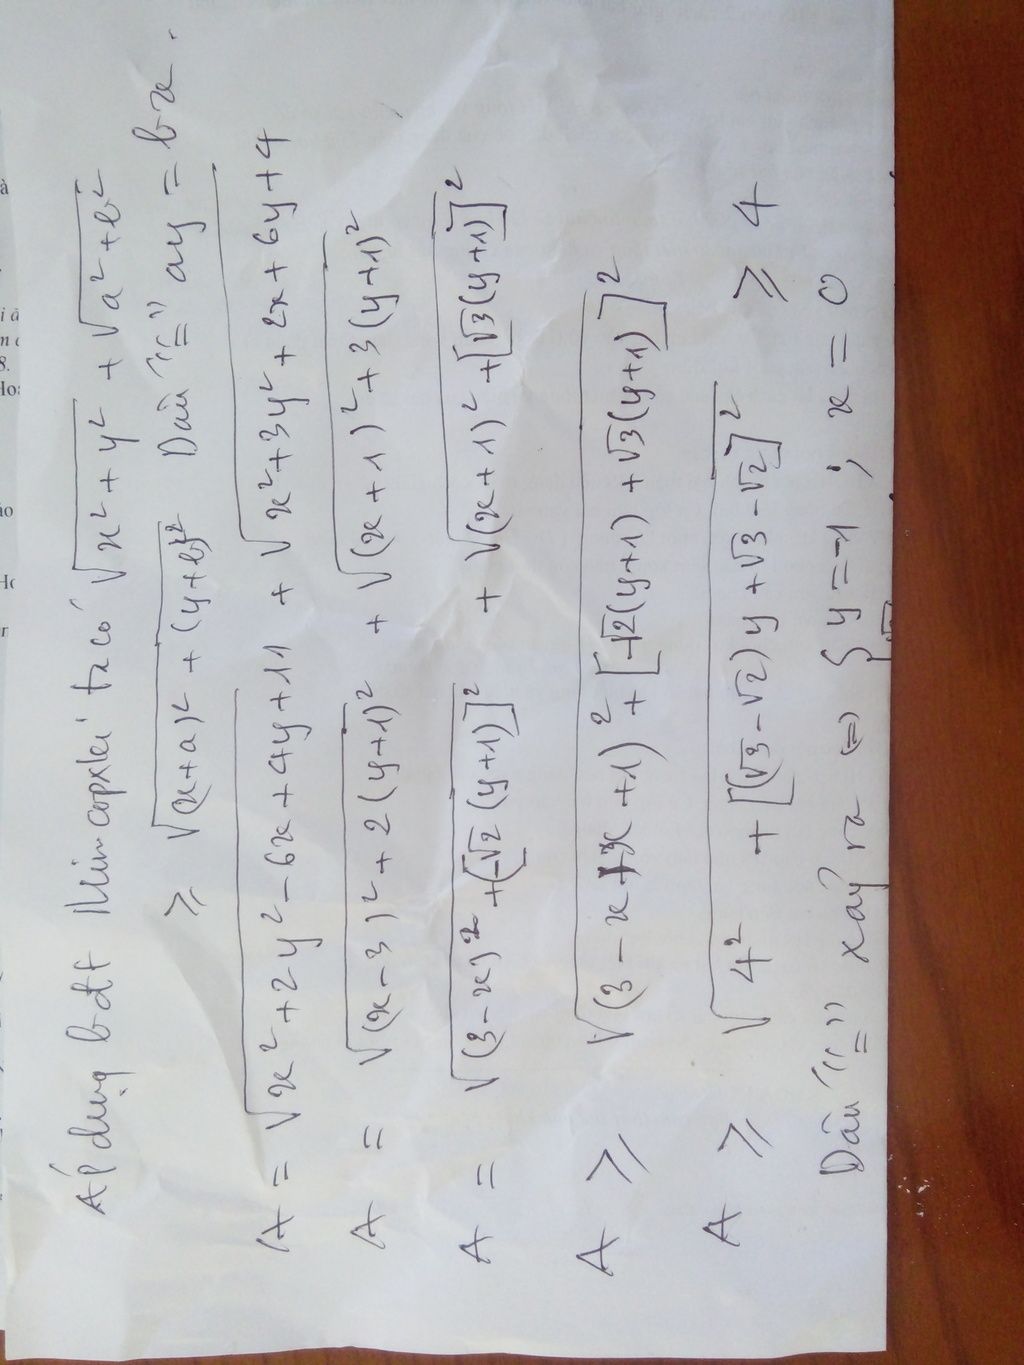 Áp dụng bđt Mincopxki ta có √(x² + y²) + √(a² + b²)
≥ √((x+a)² + (y+b)²) Dấu "=" ay = bx.
A = √(x² + 2y² - 6x + 4y + 11) + √(x² + 3y² + 2x + 6y + 4)
A = √((x-3)² + 2(y+1)²) + √((x+1)² + 3(y+1)²)
A = √((3-x)² + [-√2(y+1)]²) + √((x+1)² + [√3(y+1)]²)
A ≥ √((3-x+x+1)² + [-√2(y+1) + √3(y+1)]²)
A ≥ √(4² + [(√3-√2)y + √3-√2]²) ≥ 4
Dấu "=" xảy ra ⇔ { y = -1 ; x = 0